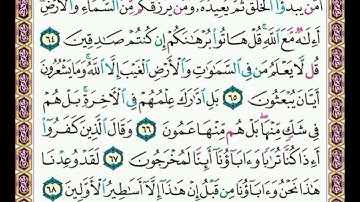 أَمَّن يَبْدَؤُا۟ ٱلْخَلْقَ ثُمَّ يُعِيدُهُۥ وَمَن يَرْزُقُكُم مِّنَ ٱلسَّمَآءِ وَٱلْأَرْضِ
أَءِلَٰهٌ مَّعَ ٱللَّهِ قُلْ هَاتُوا۟ بُرْهَٰنَكُمْ إِن كُنتُمْ صَٰدِقِينَ ٦٤
قُل لَّا يَعْلَمُ مَن فِى ٱلسَّمَٰوَٰتِ وَٱلْأَرْضِ ٱلْغَيْبَ إِلَّا ٱللَّهُ وَمَا يَشْعُرُونَ
أَيَّانَ يُبْعَثُونَ ٦٥ بَلِ ٱدَّٰرَكَ عِلْمُهُمْ فِى ٱلْءَاخِرَةِ بَلْ هُمْ
فِى شَكٍّ مِّنْهَا بَلْ هُم مِّنْهَا عَمُونَ ٦٦ وَقَالَ ٱلَّذِينَ كَفَرُوٓا۟
أَءِذَا كُنَّا تُرَٰبًا وَءَابَآؤُنَآ أَئِنَّا لَمُخْرَجُونَ ٦٧ لَقَدْ وُعِدْنَا
هَٰذَا نَحْنُ وَءَابَآؤُنَا مِن قَبْلُ إِنْ هَٰذَآ إِلَّآ أَسَٰطِيرُ ٱلْأَوَّلِينَ ٦٨